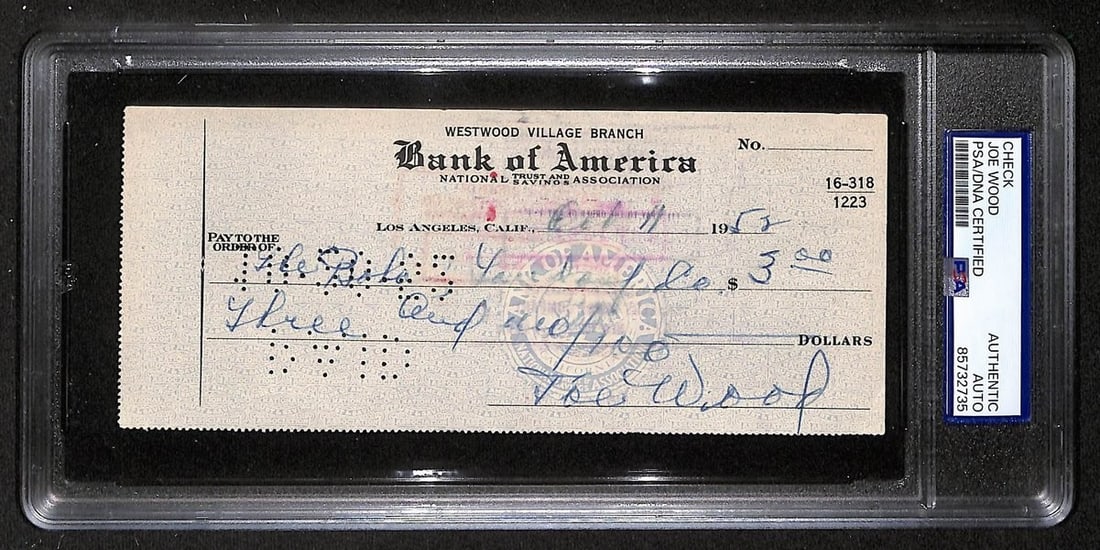 WESTWOOD VILLAGE BRANCH
Bank of America
NATIONAL TRUST AND SAVINGS ASSOCIATION
No.
16-318
1223
LOS ANGELES, CALIF., 11 1952
PAY TO THE
ORDER OF The Co. $ 3 00
Three and no/100 DOLLARS
Joe Wood
CHECK
JOE WOOD
PSA/DNA CERTIFIED
PSA
AUTHENTIC
AUTO
85732735